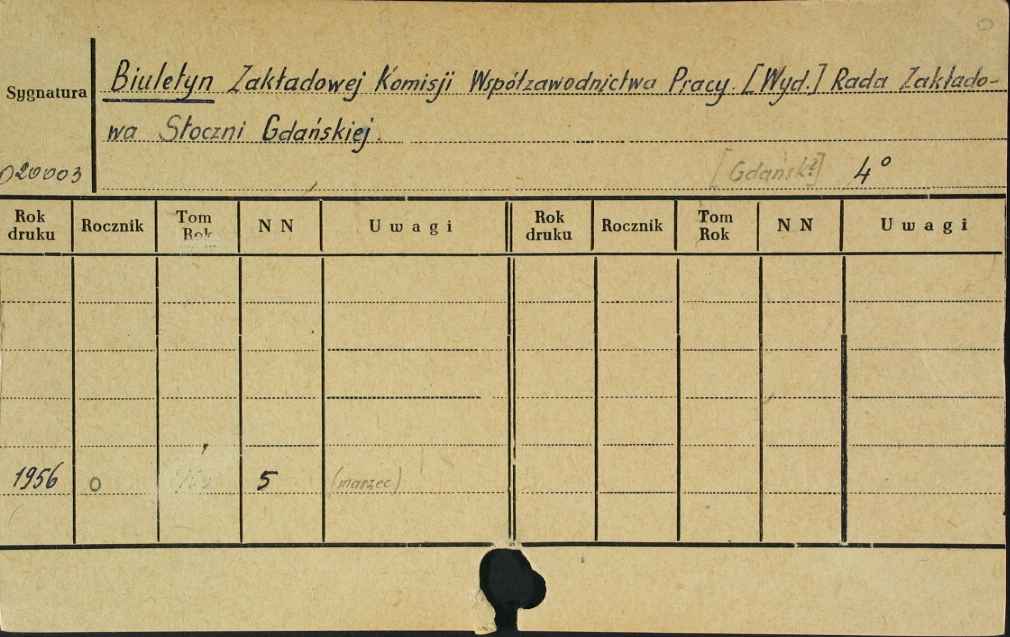 Sygnatura
Biuletyn Zakładowej Komisji Współzawodnictwa Pracy. [Wyd.] Rada Zakłado-
wa Stoczni Gdańskiej.
020003
[Gdańsk?] 4°
Rok druku Rocznik Tom Rok N N Uwagi Rok druku Rocznik Tom Rok N N Uwagi
1956 0 5 (marzec)